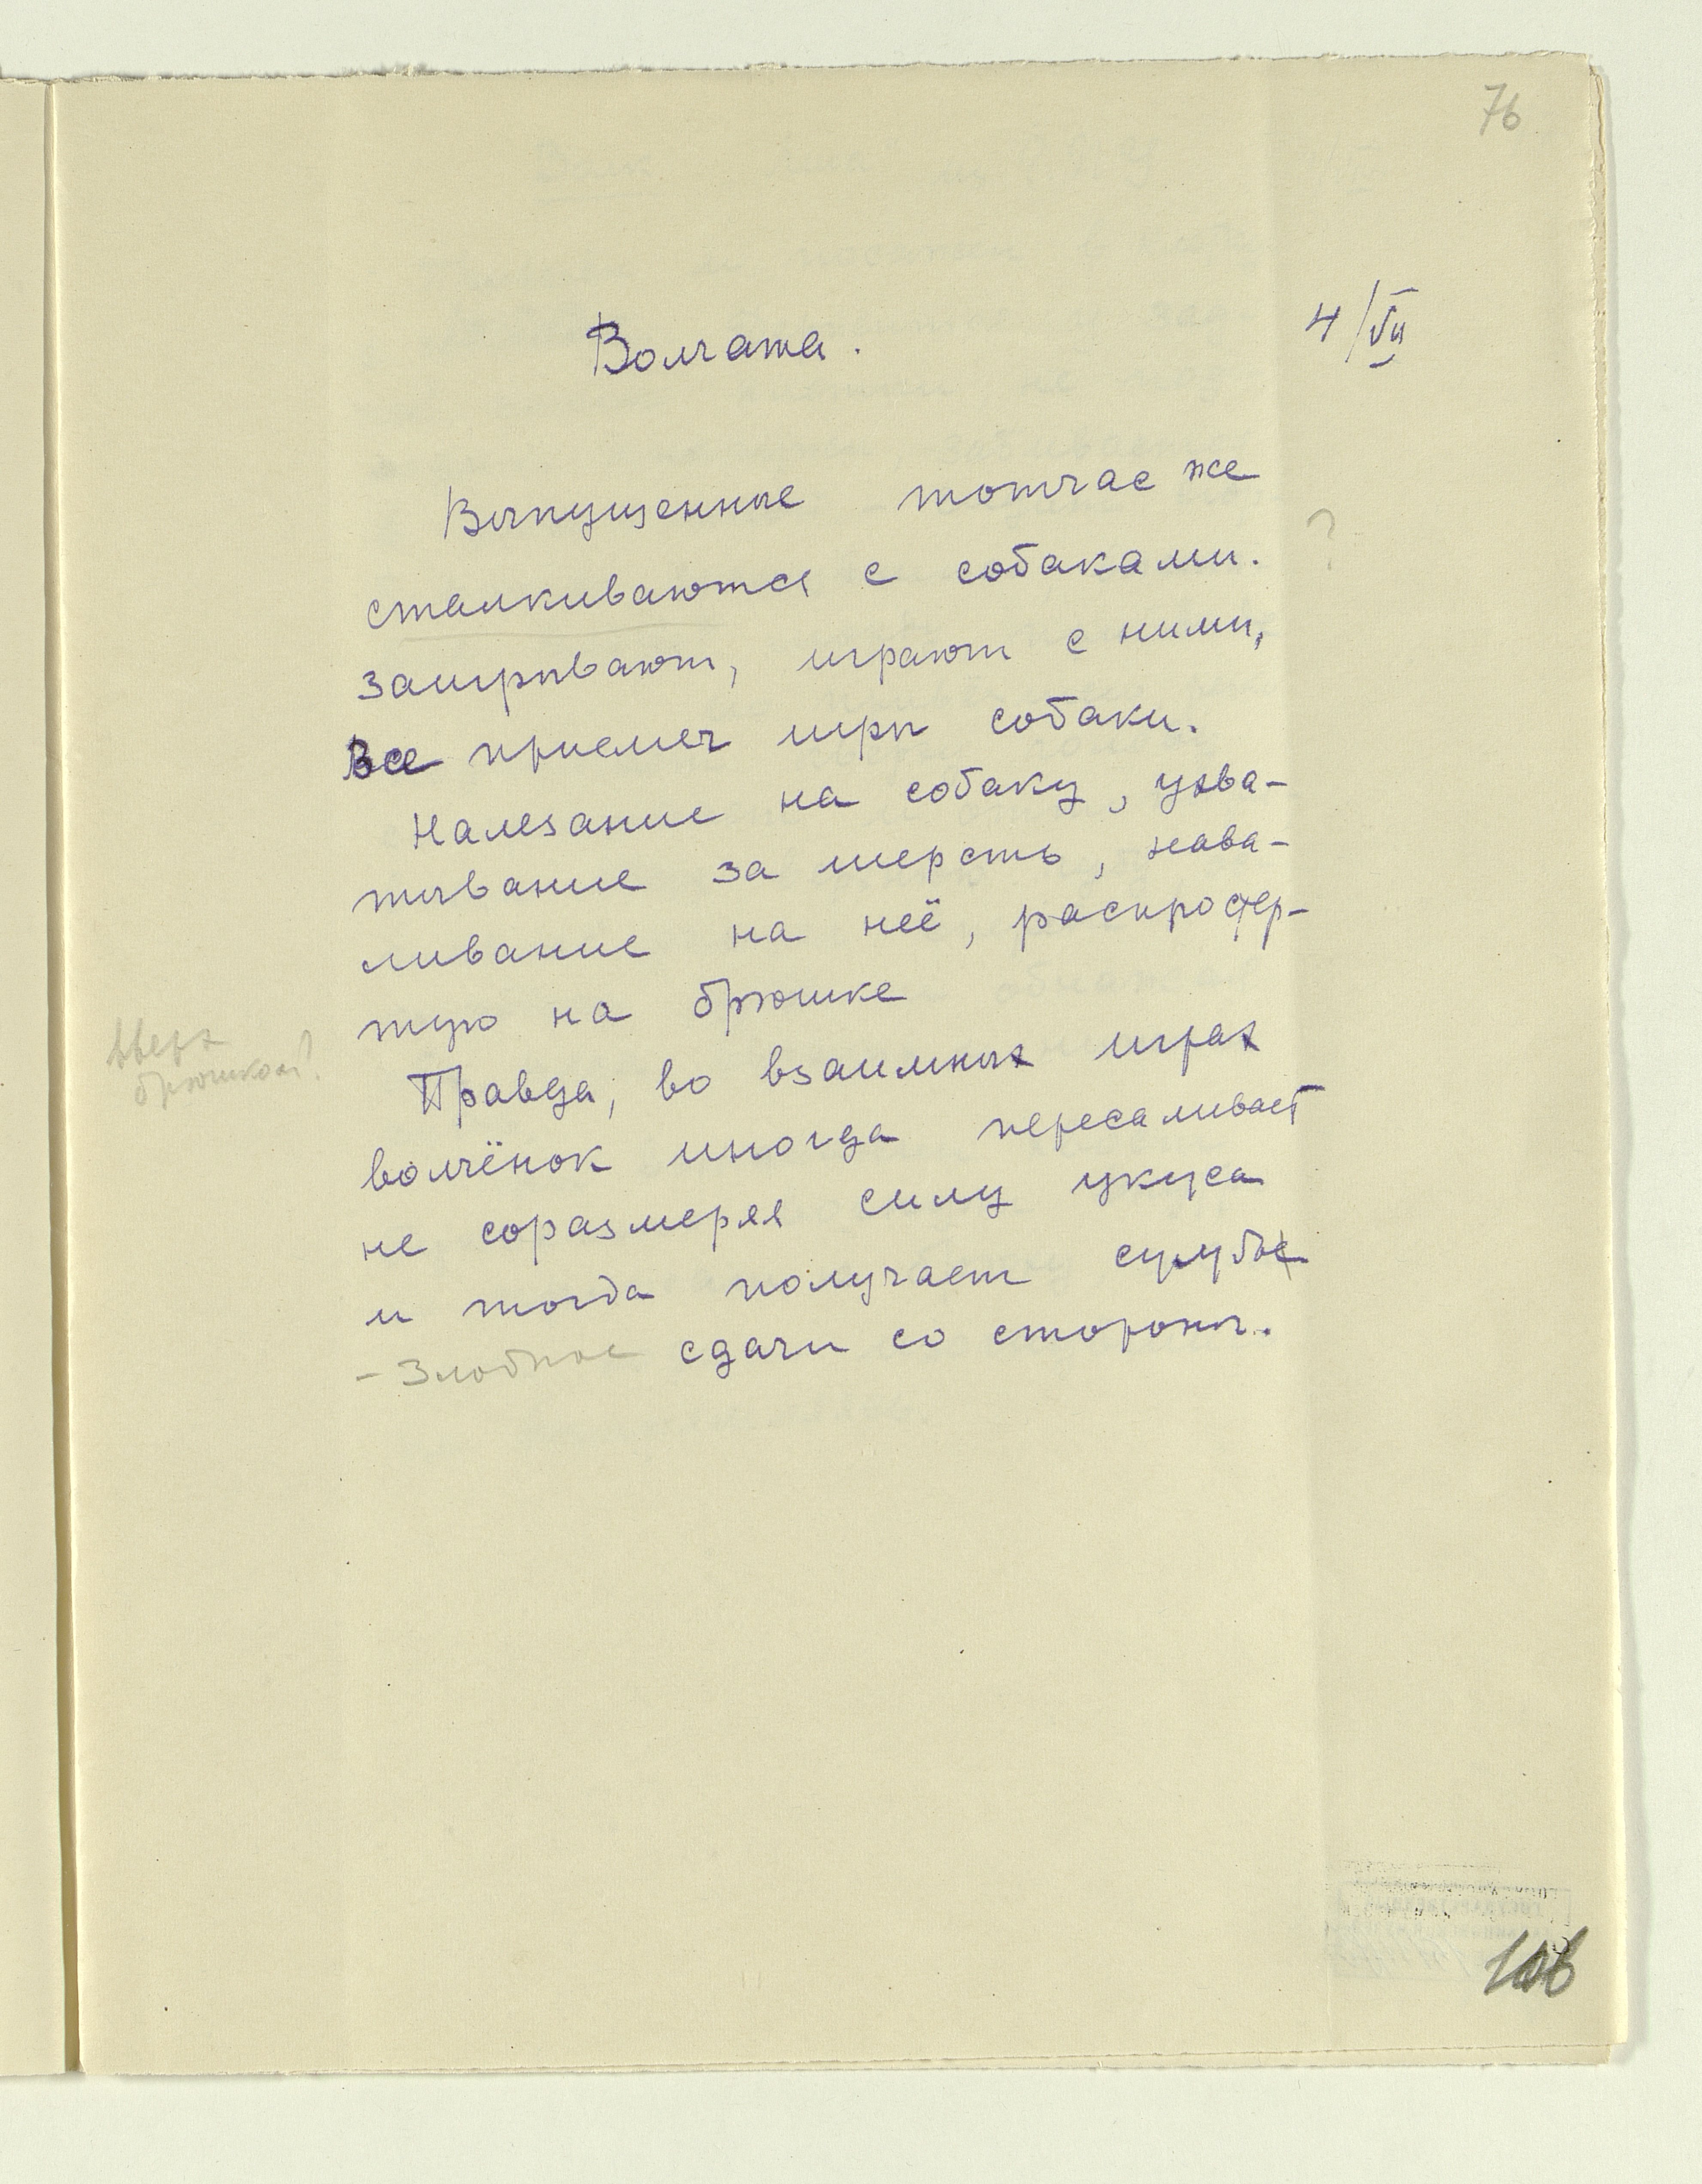 76
Волчата.
4/VII
Выпущенные тотчас же
сталкиваются с собаками. ?
заигрывают, играют с ними,
Все приемы игры собаки.
Налезание на собаку, ухва-
тывание за шерсть, нава-
ливание на неё, распростер-
тую на брюшке
вверх
брюшком?
Правда, во взаимных играх
волчёнок иногда пересаливает
не соразмеряя силу укуса
и тогда получает сугубые
- Злобные сдачи со стороны.